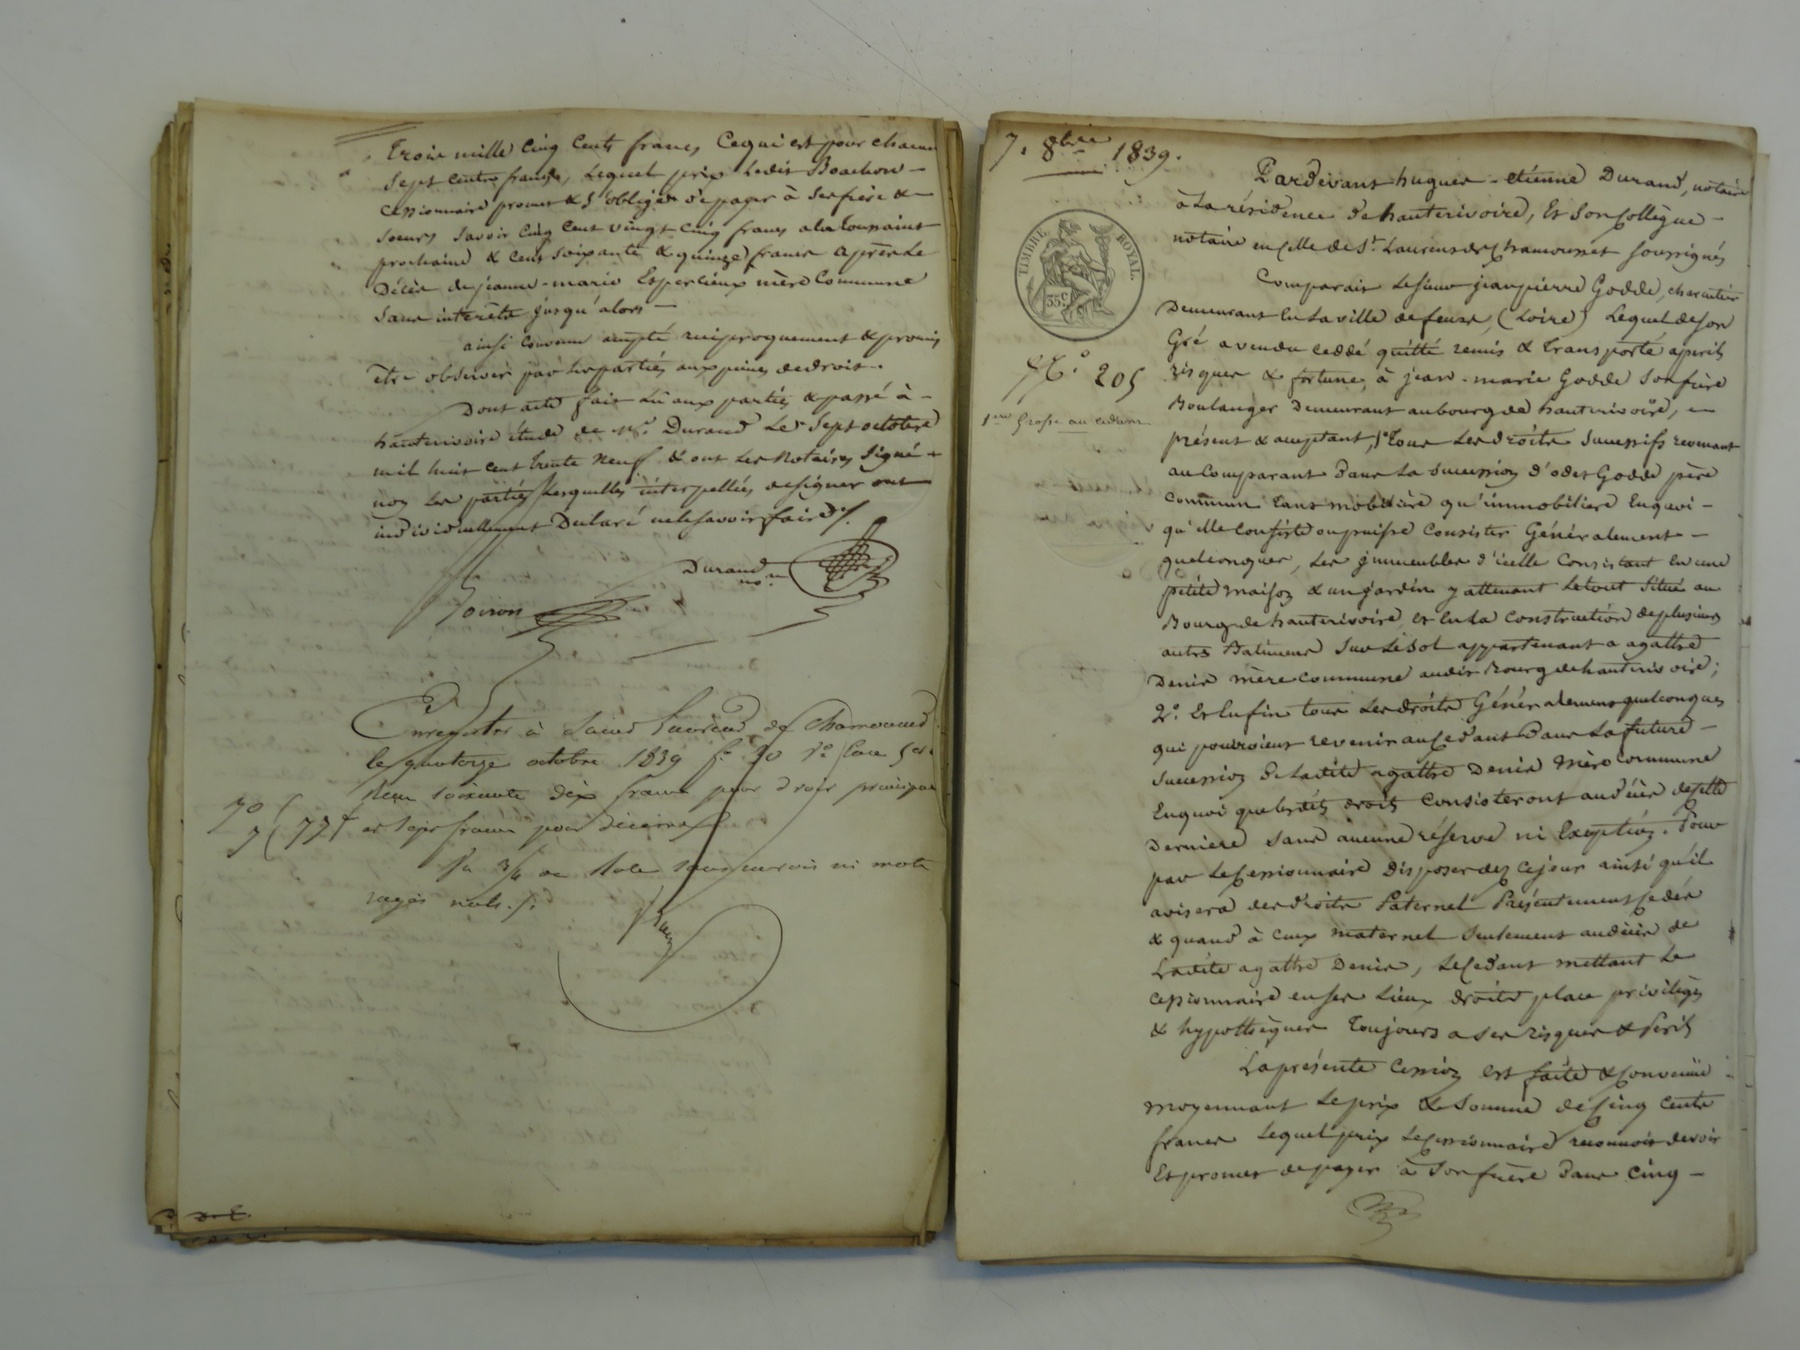 trois mille cinq cents francs Ce qui est pour chacun
sept cents francs, Lequel prix Ledit Boachon -
Cessionnaire promet & s'oblige de payer à ses frère &
soeurs savoir cinq cent vingt cinq francs a la toussaint
prochaine & cent soixante & quinze francs après Le
Décès de jeanne-marie Esparlieux mère Commune
sans interêts jusqu'alors -
ainsi convenu accepté réciproquement & promis
être observé par les parties aux peines de droit.
Dont acte fait Lu aux parties & passé à -
hauterivoire étude de Me. Durand Le sept octobre
mil huit cent trente neuf & ont Les Notaires signé &
non Les parties Lesquelles interpellées de signer ont
individuellement Déclaré ne le savoir faire./.
Durand
nore
Voiron
Enregistré à Saint Laurent de Chamousset
le quatorze octobre 1839 fo. 30 Vo Case
Reçu soixante dix francs pour droit principal
70
7 ( 77f
et sept francs pour décime
rayés nuls ./.
7. 8bre 1839.
Pardevant hugues-etienne Durand, notaire
à La résidence de hauterivoire, Et Son Collègue -
notaire en Celle de St. Laurens de Chamousset soussignés
TIMBRE ROYAL
35c
Comparait Le sieur jean pierre Godde, charcutier
Demeurant En La ville de feurs, (Loire) Lequel de son
Gré a vendu ceddé quitté remis & transporté a perils
No. 205
risques & fortune, à jean-marie Godde son frère
1ere Grosse au cedant
Boulanger Demeurant au bourg de hauterivoire, -
présent & acceptant, 1o tous Les droits successifs revenant
au Comparant Dans La succession d'odet Godde père
commun tant mobiliere qu'immobiliere En quoi -
qu'elle consiste ou puisse Consister Généralement -
quelconques, Les jmmeubles d'icelle Consistant En une
petite maison & un jardin y attenant Le tout situé au
Bourg de hauterivoire, et En La Construction de plusieurs
autres Batiments sur Le sol appartenant a agathe
Denis mère commune audit Bourg de hauterivoire;
2o. Et Enfin tous Les droits Généralement quelconques
qui pourroient revenir au Cedant Dans La future -
succession de Ladite agathe Denis mère commune
En quoi que lesdits droits Consisteront au décès de cette
Derniere sans aucune réserve ni Exception. Pour
par Le Cessionnaire disposer dez Cejour ainsi qu'il
avisera des droits Paternel Présentement Cedés
& quand à ceux maternel seulement au décès de
Ladite agathe Denis, Le Cedant mettant Le
cessionnaire en ses Lieux droits place privilèges
& hypothèques toujours a ses risques & Perils
La présente Cession est faite & Convenüe -
moyennant Le prix & Somme de Cinq Cents
francs Lequel prix Le Cessionnaire reconnoit devoir
Et promet de payer à Son frère Dans Cinq -